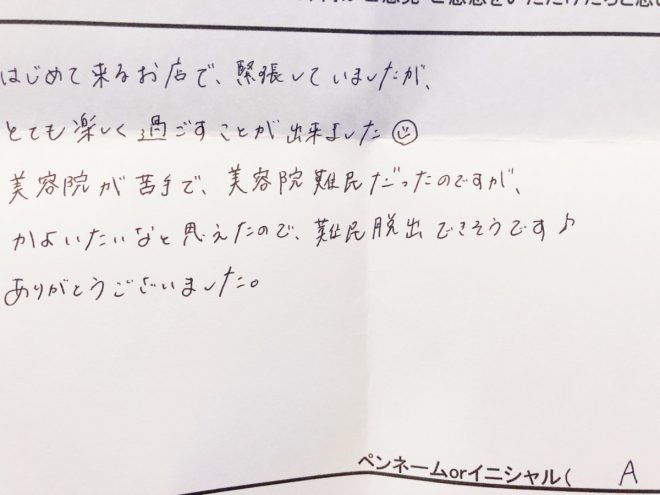 はじめて来るお店で、緊張していましたが、
とても楽しく過ごすことが出来ました☺
美容院が苦手で、美容院難民だったのですが、
かよいたいなと思えたので、難民脱出できそうです♪
ありがとうございました。
ペンネームorイニシャル( A